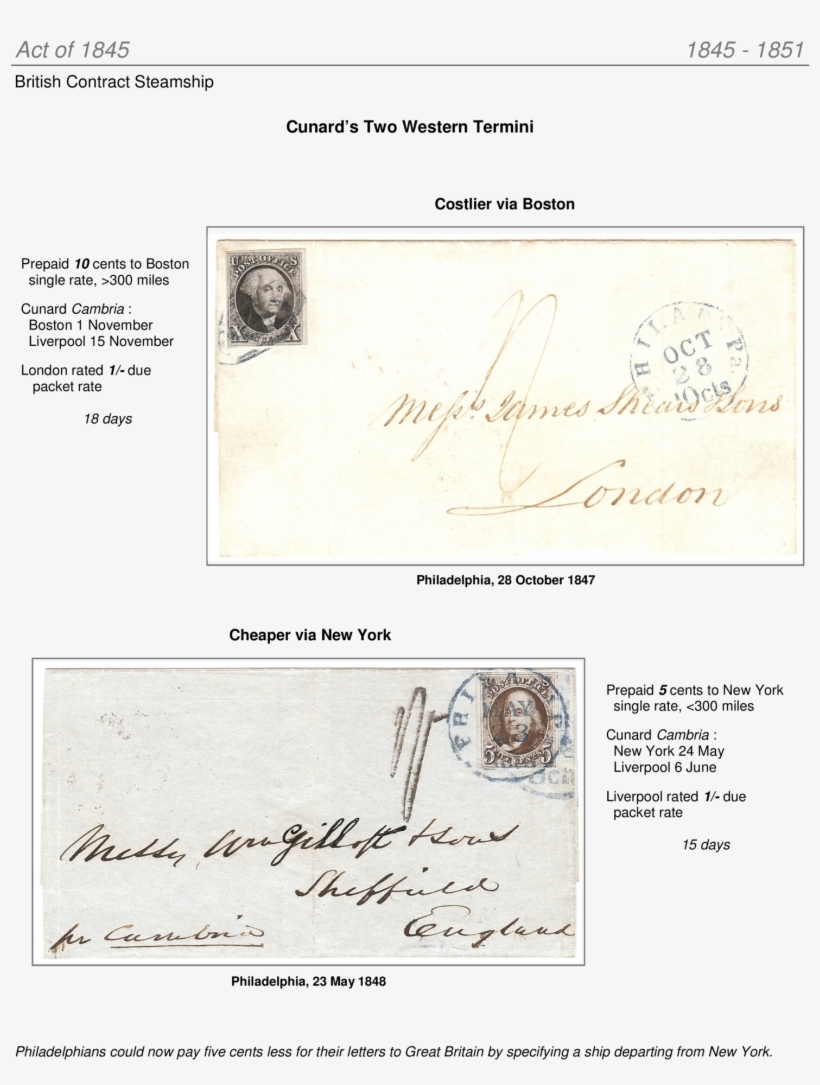 Act of 1845
1845 - 1851
British Contract Steamship
Cunard's Two Western Termini
Costlier via Boston
Prepaid 10 cents to Boston
single rate, >300 miles
Cunard Cambria :
Boston 1 November
Liverpool 15 November
London rated 1/- due
packet rate
18 days
POST OFFICE
U S
X X
PHILADA Pa
OCT
28
10cts
Messrs. James Shears & Sons
London
Philadelphia, 28 October 1847
Cheaper via New York
POST OFFICE
5 5
MAY
23
Messrs Wm Gillott & Sons
Sheffield
England
pr Cambria
Philadelphia, 23 May 1848
Prepaid 5 cents to New York
single rate, <300 miles
Cunard Cambria :
New York 24 May
Liverpool 6 June
Liverpool rated 1/- due
packet rate
15 days
Philadelphians could now pay five cents less for their letters to Great Britain by specifying a ship departing from New York.